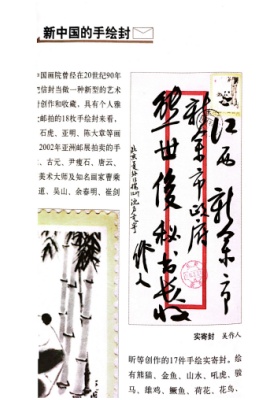 新中国的手绘封
中国画院曾经在20世纪90年
信封当做一种新型的艺术
创作和收藏。具有个人雅
友邮拍的18枚手绘封来看,
石虎、亚明、陈大章等画
2002年亚洲邮展拍卖的手
、古元、尹瘦石、唐云、
美术大师及知名画家曹秉
道、吴山、余春明、崔剑
江西新余市
新余市政府
熊世俊秘书长收
作人
实寄封 吴作人
昕等创作的17件手绘实寄封。绘
有熊猫、金鱼、山水、吼虎、骏
马、雄鸡、鳜鱼、荷花、花鸟、